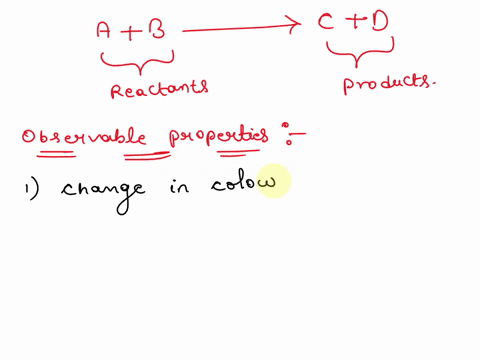 A + B → C + D
Reactants Products.
Observable properties :-
1) change in colou